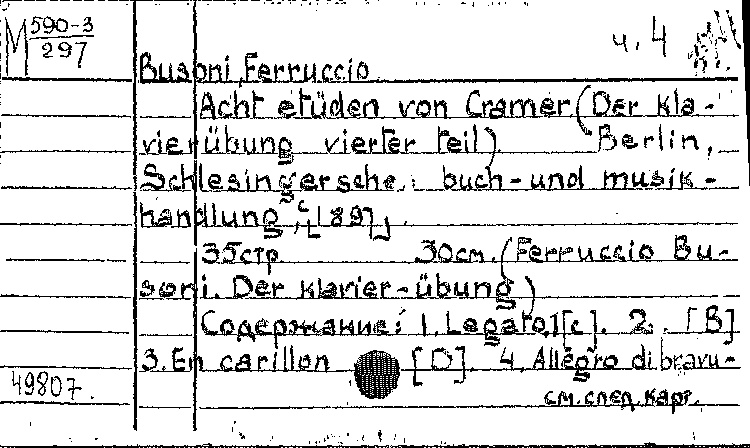 М 590-3
297
ч. 4
Busoni, Ferruccio
Acht etüden von Cramer (Der kla-
vierübung vierter teil) Berlin,
Schlesingersche buch-und musik-
handlung, c[1897].
35стр. 30см. (Ferruccio Bu-
soni. Der klavier-übung)
Содержание: 1. Legato. [c]. 2. [B]
3. En carillon [D]. 4. Allegro di bravu-
49807.
см. след. карт.